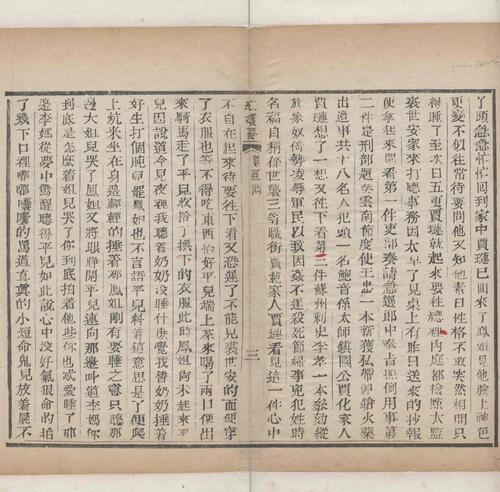 了頭急急忙忙回到家中賈璉已回來了鳳姐見他臉上神色
更變不似往常待要問他又知他素日性格不敢突然相問只
得睡了至次日五更賈璉就起來要往總理內庭都檢點太監
裘世安家來打聽事務因太早了見桌上有昨日送來的抄報
便拿起來閒看第一件吏部奏請急選郎中奉旨照例用事第
二件是刑部題奏雲南節度使王忠一本新獲私帶神鎗火藥
出邊事共十八名人犯頭一名鮑音係太師鎮國公賈化家人
賈璉想了一想又往下看第三件蘇州刺史李孝一本叅劾縱
放家奴倚勢凌辱軍民以致因姦不遂殺死節婦事兇犯姓時
名福自稱係世襲三等職銜賈範家人賈璉看見這一件心中
紅樓夢 第百一回 三
不自在起來待要往下看又恐遲了不能見裘世安的面便穿
了衣服也等不得吃東西恰好平兒端上茶來喝了兩口便出
來騎馬走了平兒收拾了換下的衣服此時鳳姐尚未起來平
兒因說道今兒夜裡我聽着奶奶沒睡什麽覺我替奶奶捶着
好生打個盹兒罷鳳姐也不言語平兒料着這意思是了便爬
上炕來坐在身邊輕輕的捶着那鳳姐剛有要睡之意只聽那
邊大姐兒哭了鳳姐又將眼睜開平兒連向那邊叫道李媽你
到底是怎麽着姐兒哭了你到底拍着他些你也忒愛睡了那
邊李媽從夢中驚醒聽得平兒如此說心中沒好氣狠命的拍
了幾下口裡嘟嘟噥噥的罵道真真的小短命鬼兒放着屍不